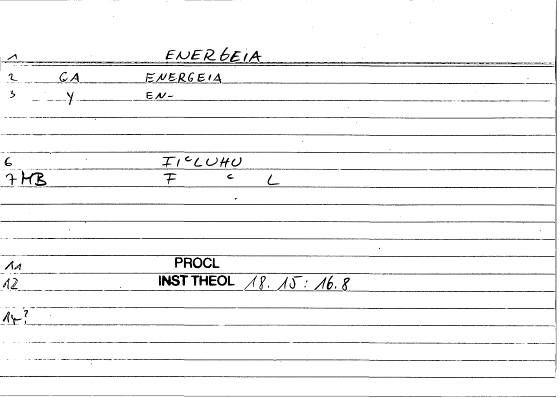 1 ENERGEIA
2 GA ENERGEIA
3 Y EN-
6 FIᶜLUHU
7 MB F ᶜ L
11 PROCL
12 INST THEOL 18. 15 : 16.8
14?